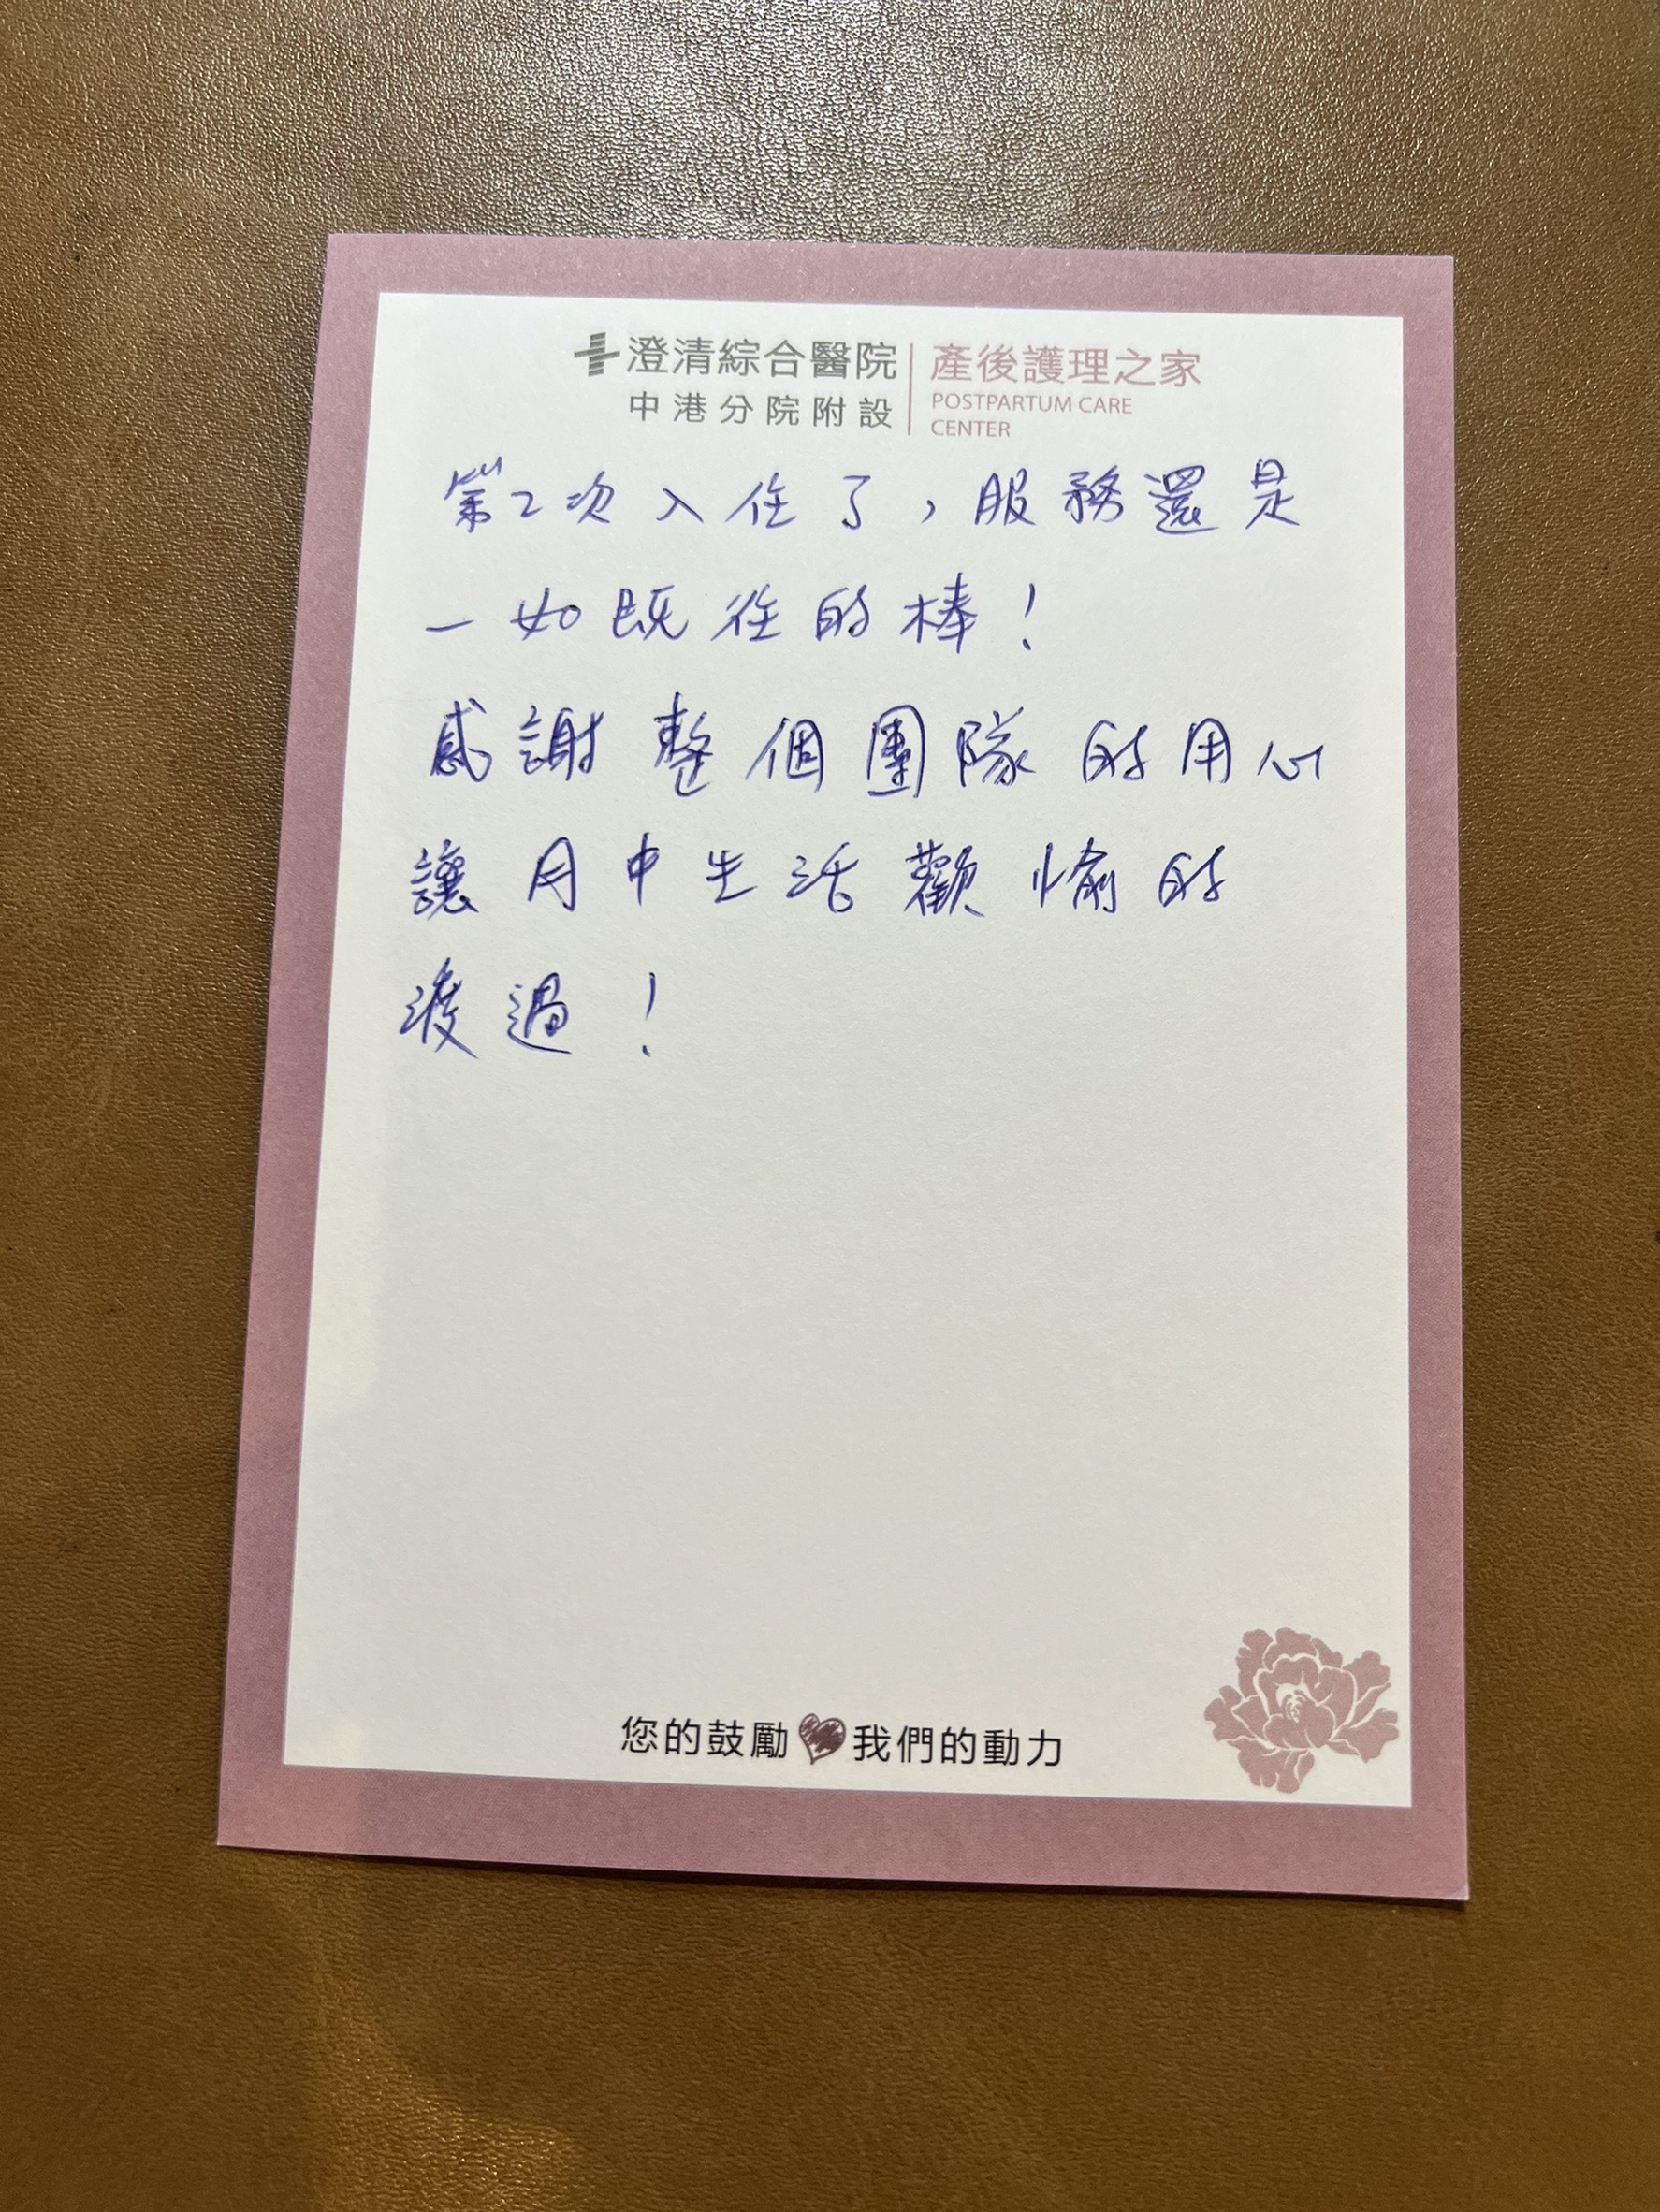 澄清綜合醫院
中港分院附設
產後護理之家
POSTPARTUM CARE
CENTER
第2次入住了，服務還是
一如既往的棒！
感謝整個團隊的用心
讓月中生活歡愉的
渡過！
您的鼓勵 我們的動力